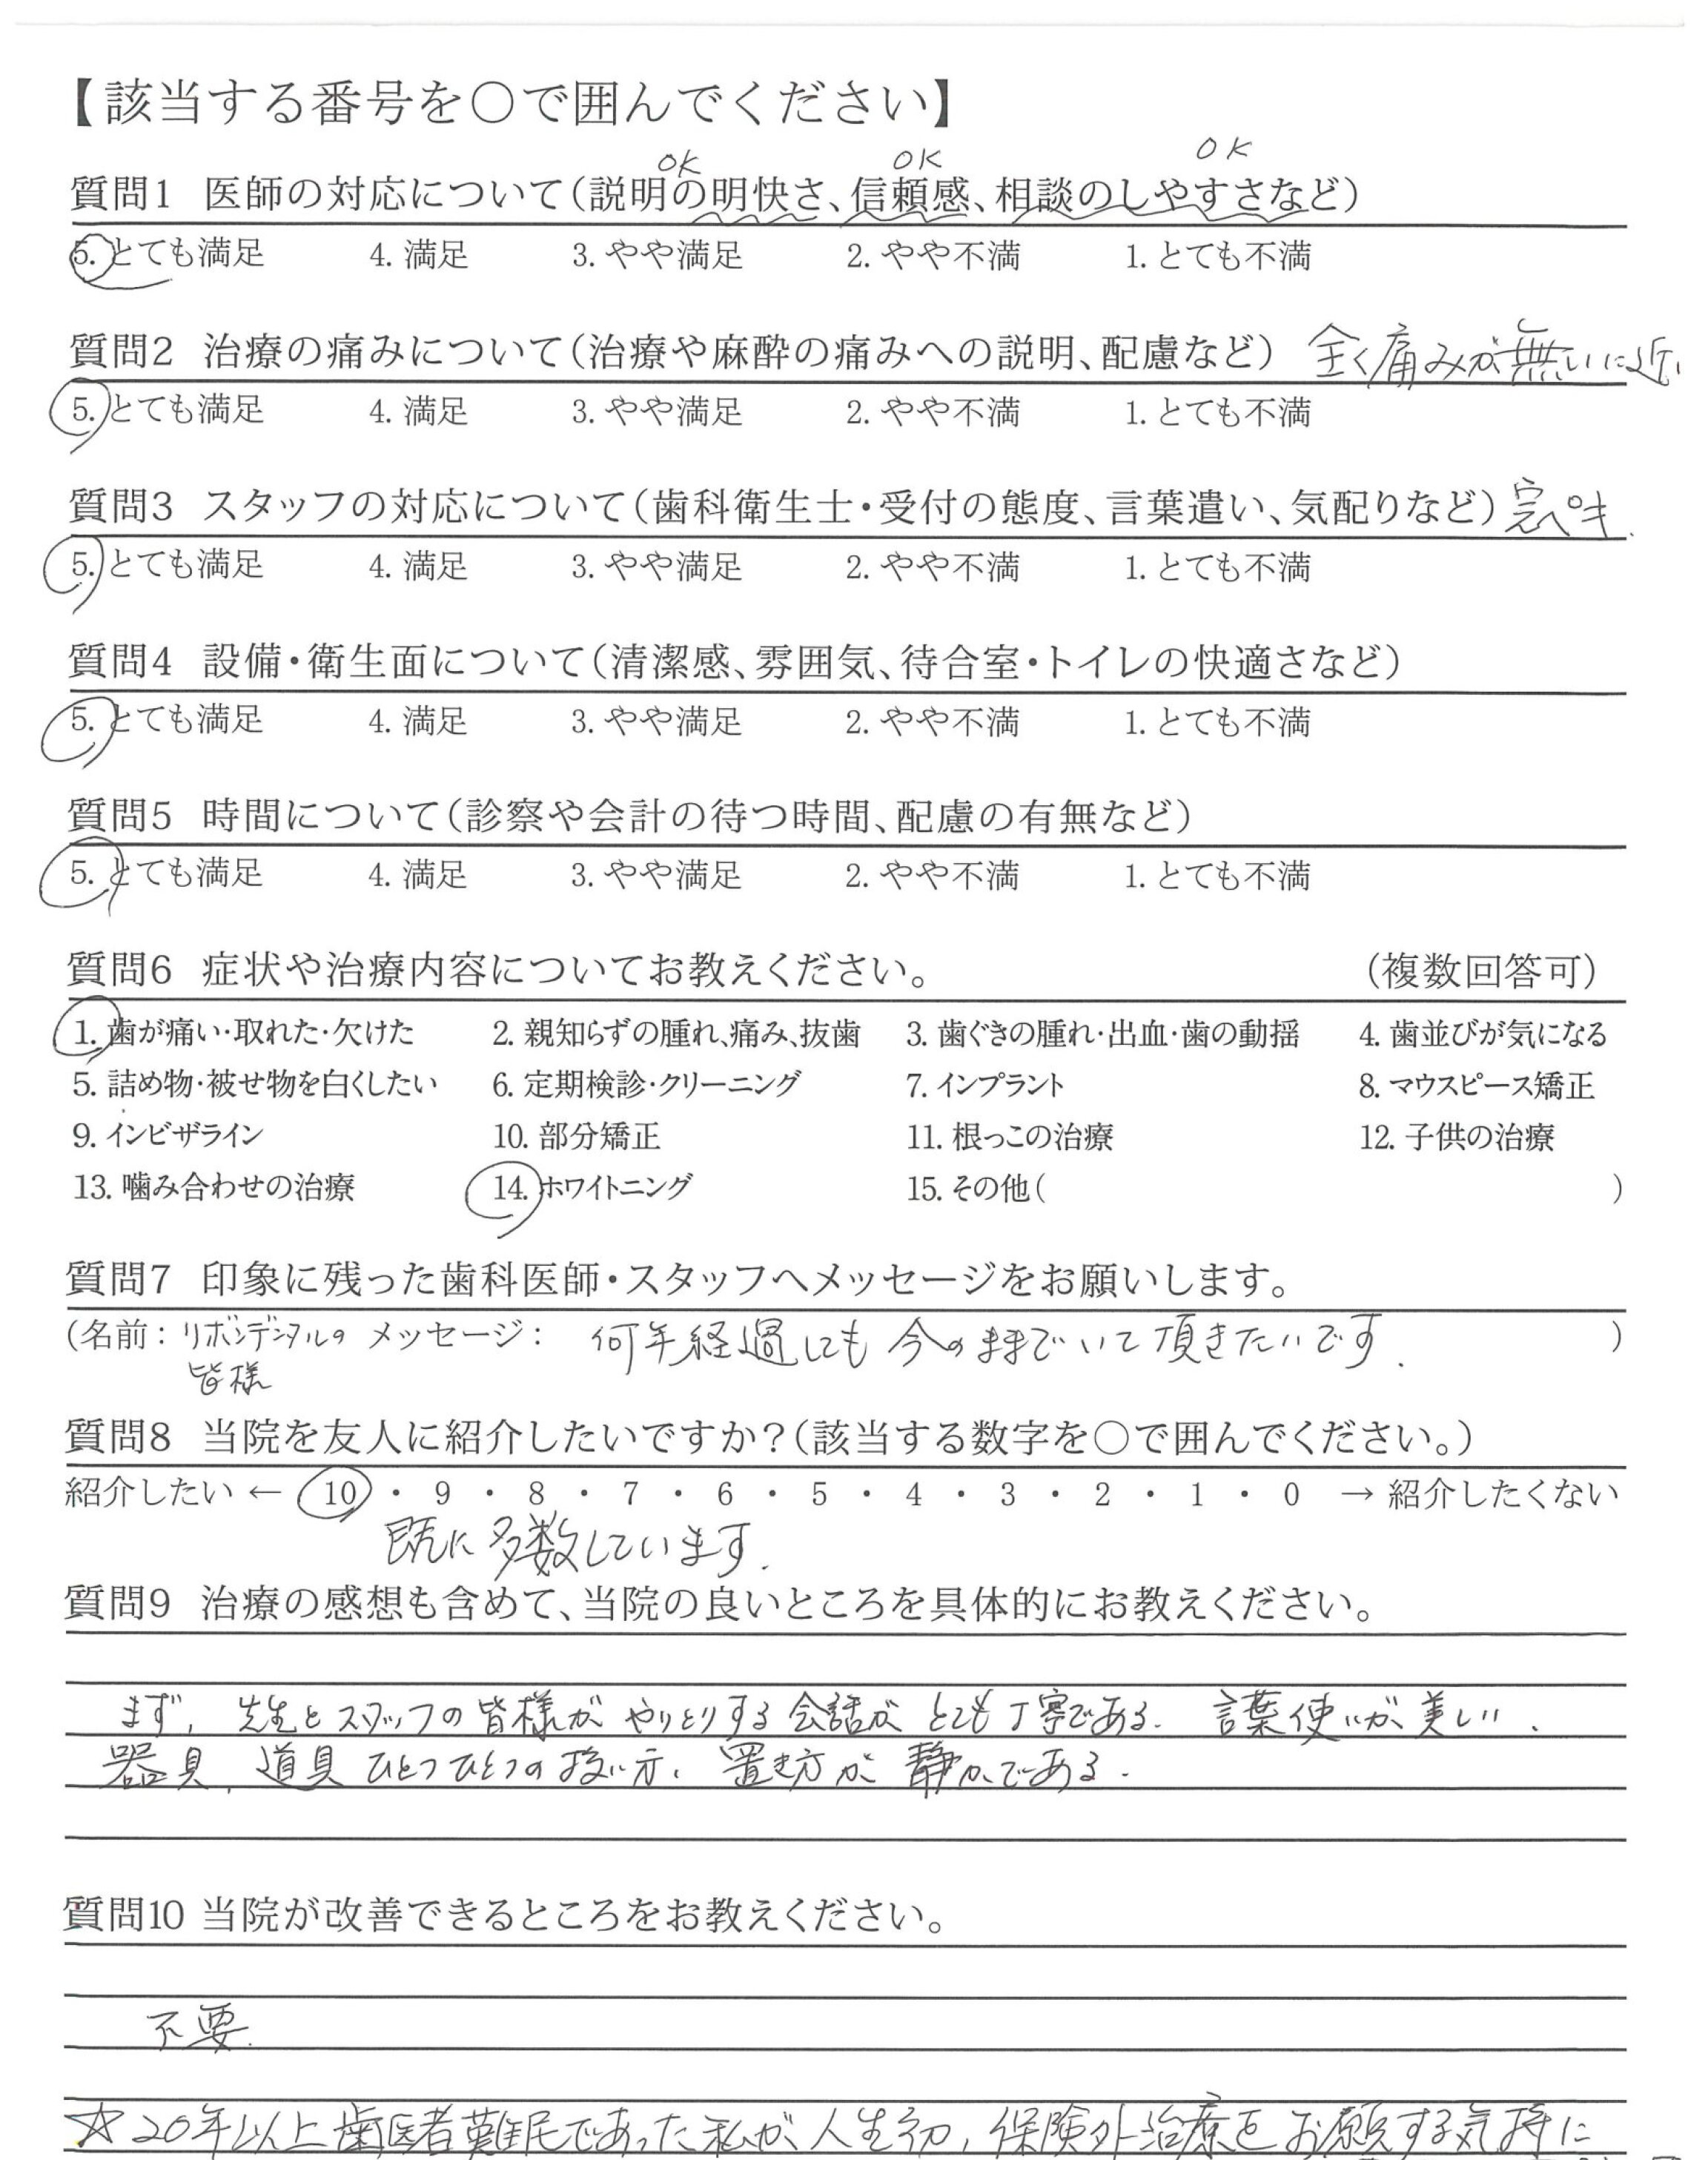 【該当する番号を〇で囲んでください】
OK OK OK
質問1 医師の対応について(説明の明快さ、信頼感、相談のしやすさなど)
5. とても満足 4. 満足 3. やや満足 2. やや不満 1. とても不満
質問2 治療の痛みについて(治療や麻酔の痛みへの説明、配慮など) 全く痛みが無いに近い
5. とても満足 4. 満足 3. やや満足 2. やや不満 1. とても不満
質問3 スタッフの対応について(歯科衛生士・受付の態度、言葉遣い、気配りなど) 完ペキ.
5. とても満足 4. 満足 3. やや満足 2. やや不満 1. とても不満
質問4 設備・衛生面について(清潔感、雰囲気、待合室・トイレの快適さなど)
5. とても満足 4. 満足 3. やや満足 2. やや不満 1. とても不満
質問5 時間について(診察や会計の待つ時間、配慮の有無など)
5. とても満足 4. 満足 3. やや満足 2. やや不満 1. とても不満
質問6 症状や治療内容についてお教えください。 (複数回答可)
1. 歯が痛い・取れた・欠けた 2. 親知らずの腫れ、痛み、抜歯 3. 歯ぐきの腫れ・出血・歯の動揺 4. 歯並びが気になる
5. 詰め物・被せ物を白くしたい 6. 定期検診・クリーニング 7. インプラント 8. マウスピース矯正
9. インビザライン 10. 部分矯正 11. 根っこの治療 12. 子供の治療
13. 噛み合わせの治療 14. ホワイトニング 15. その他( )
質問7 印象に残った歯科医師・スタッフへメッセージをお願いします。
(名前: リボンデンタルの メッセージ: 何年経過しても 今のままでいて頂きたいです. )
皆様
質問8 当院を友人に紹介したいですか?(該当する数字を〇で囲んでください。)
紹介したい ← 10 ・ 9 ・ 8 ・ 7 ・ 6 ・ 5 ・ 4 ・ 3 ・ 2 ・ 1 ・ 0 → 紹介したくない
既に多数しています.
質問9 治療の感想も含めて、当院の良いところを具体的にお教えください。
まず、先生とスタッフの皆様がやりとりする会話がとても丁寧である. 言葉使いが美しい.
器具、道具ひとつひとつの扱い方、置き方が静かである.
質問10 当院が改善できるところをお教えください。
不要.
☆20年以上歯医者難民であった私が、人生初、保険外治療をお願いする気持に